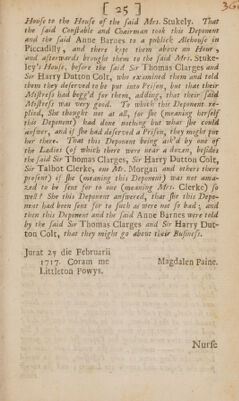 [ 25 ]
House to the House of the said Mrs. Stukely. That
the said Constable and Chairman took this Deponent
and the said Anne Barnes to a publick Alehouse in
Piccadilly, and there kept them above an Hour,
and afterwards brought them to the said Mrs. Stuke-
ley's House, before the said Sir Thomas Clarges and
Sir Harry Dutton Colt, who examined them and told
them they deserved to be put into Prison, but that their
Mistress had begg'd for them, adding, that their said
Mistress was very good. To which this Deponent re-
plied, She thought not at all, for she (meaning herself
this Deponent) had done nothing but what she could
answer, and if she had deserved a Prison, they might put
her there. That this Deponent being ask'd by one of
the Ladies (of which there were near a dozen, besides
the said Sir Thomas Clarges, Sir Harry Dutton Colt,
Sir Talbot Clerke, one Mr. Morgan and others there
present) if she (meaning this Deponent) was not ama-
zed to be sent for to one (meaning Mrs. Clerke) so
well? She this Deponent answered, that she this Depo-
nent had been sent for to such as were not so bad; and
then this Deponent and the said Anne Barnes were told
by the said Sir Thomas Clarges and Sir Harry Dut-
ton Colt, that they might go about their Business.
Jurat 27 die Februarii
1717. Coram me Magdalen Paine.
Littleton Powys.
Nurse